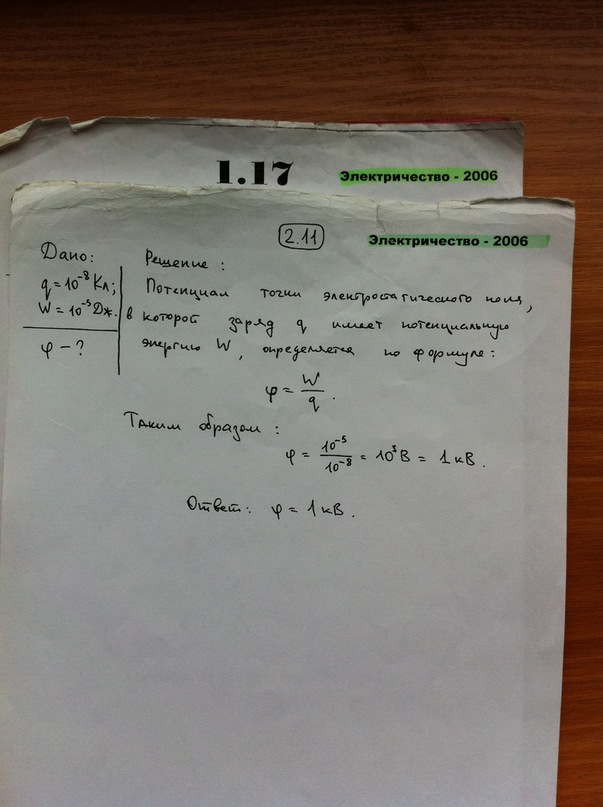 1.17
Электричество - 2006
2.11
Электричество - 2006
Дано:
q = 10⁻⁸ Кл;
W = 10⁻⁵ Дж.
φ - ?
Решение:
Потенциал точки электростатического поля,
в которой заряд q имеет потенциальную
энергию W, определяется по формуле:
φ = W/q.
Таким образом:
φ = 10⁻⁵/10⁻⁸ = 10³ В = 1 кВ.
Ответ: φ = 1 кВ.